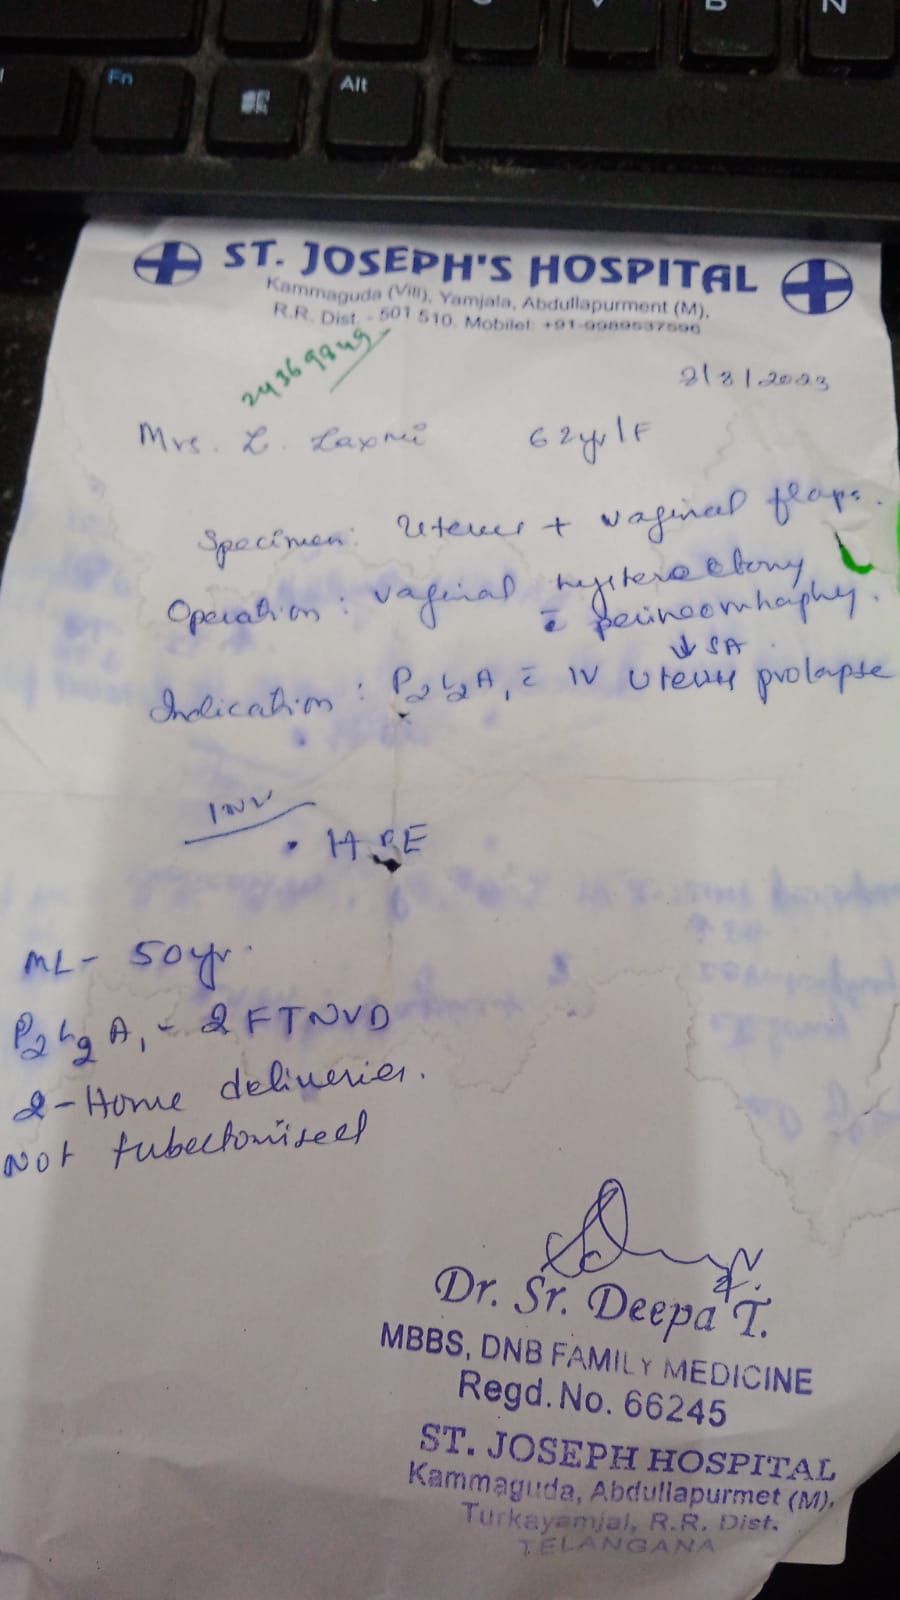 Fn
Alt
B
N
ST. JOSEPH'S HOSPITAL
Kammaguda (Vill), Yamjala, Abdullapurment (M),
R.R. Dist. - 501 510. Mobilel: +91-9989537596
24369849
2/3/2023
Mrs. L. Laxmi 62yr/F
Specimen: Uterus + vaginal flaps.
Operation: vaginal hysterectomy
c perineorrhaphy.
↓ SA
Indication: P2L2A1 c IV Uterus prolapse
INV
• HPE
ML - 50yr.
P2L2A1 - 2 FTNVD
2 - Home deliveries.
Not tubectomised
Dr. Sr. Deepa T.
MBBS, DNB FAMILY MEDICINE
Regd. No. 66245
ST. JOSEPH HOSPITAL
Kammaguda, Abdullapurmet (M),
Turkayamjal, R.R. Dist.
TELANGANA